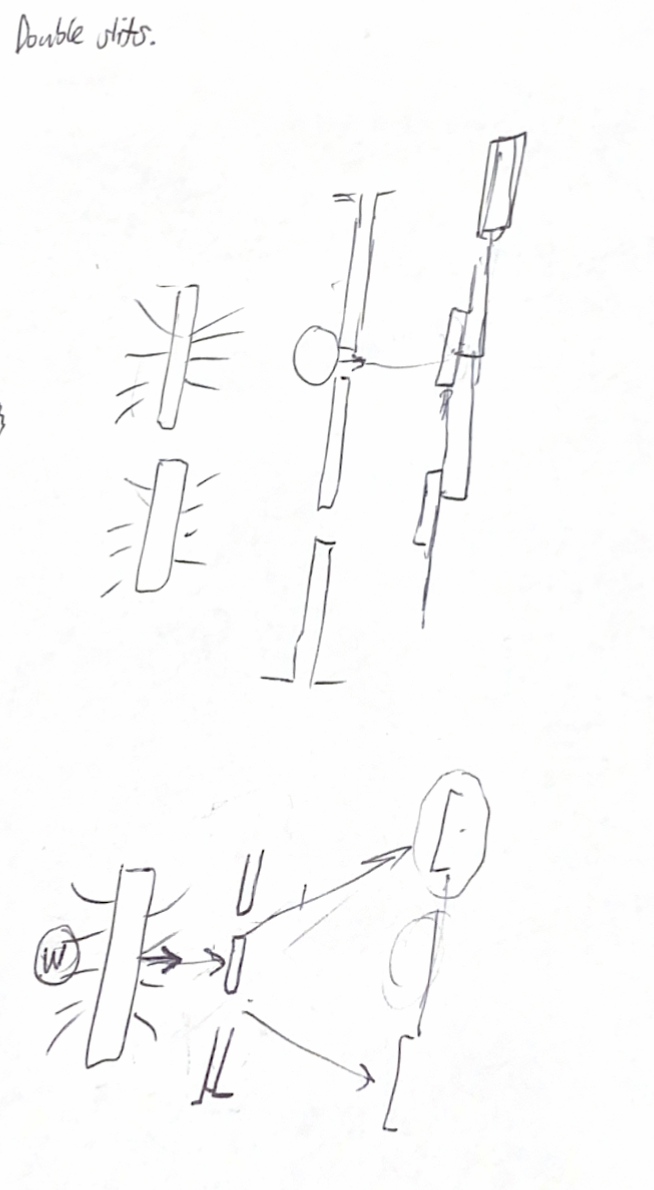 Double slits.
W